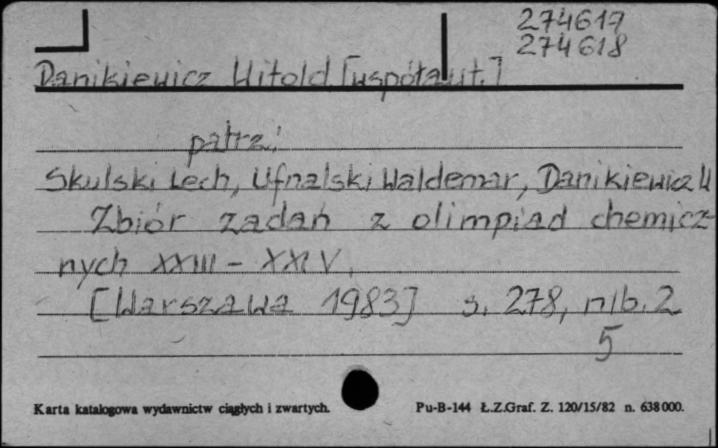 274617
274618
Danikiewicz Witold [współaut.]
patrz:
Skulski Lech, Ufnalski Waldemar, Danikiewicz W
Zbiór zadań z olimpiad chemicz-
nych XXIII - XXIV.
[Warszawa 1983] s. 278, nlb. 2
5
Karta katalogowa wydawnictw ciągłych i zwartych.
Pu-B-144 Ł.Z.Graf. Z. 120/15/82 n. 638000.